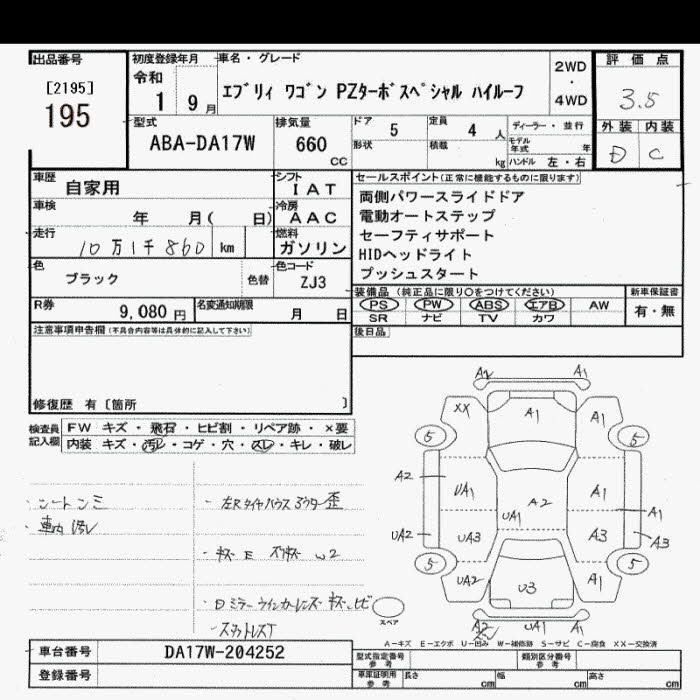 出品番号
[2195]
195
初度登録年月
令和
1 9月
車名・グレード
エブリィ ワゴン PZターボスペシャル ハイルーフ
2WD
・
4WD
評価点
3.5
外装 内装
D C
型式
ABA-DA17W
排気量
660
CC
ドア 5
形状
定員 4人
積載 kg
ディーラー・並行
モデル年式 年
ハンドル 左・右
車歴
自家用
シフト
IAT
車検
年 月( 日)
冷房
AAC
走行
10万1千860 km
燃料
ガソリン
色
ブラック
色替
色コード
ZJ3
R券
9,080円
名変通知期限
月 日
セールスポイント(正常に機能するものに限ります)
両側パワースライドドア
電動オートステップ
セーフティサポート
HIDヘッドライト
プッシュスタート
装備品(純正品に限り○をつけてください)
PS PW ABS エアB AW
SR ナビ TV カワ
新車保証書
有・無
後日品
注意事項申告欄(不具合内容等は具体的に記入して下さい)
修復歴 有〔箇所 〕
検査員記入欄
FW キズ・飛石・ヒビ割・リペア跡・×要
内装 キズ・汚レ・コゲ・穴・スレ・キレ・破レ
・シートシミ
・車内汚レ
・左Rタイヤハウスアウター歪
・キズ E スリキズ W2
・ミラーウインカーレンズ キズ、ヒビ
A2 A1
XX A1 A1
5 5
A2 UA1 A2 A1
UA1 A1
UA2 UA3 A3 A3
5 5
UA2 U3 A1
A2 UA1 A1
スペア
A-キズ E-エクボ U-凹み W-補修跡 S-サビ C-腐食 XX-交換済
車台番号
DA17W-204252
登録番号
型式指定番号
参考
類別区分番号
参考
車庫証明用
参考
長さ cm
幅 cm
高さ cm